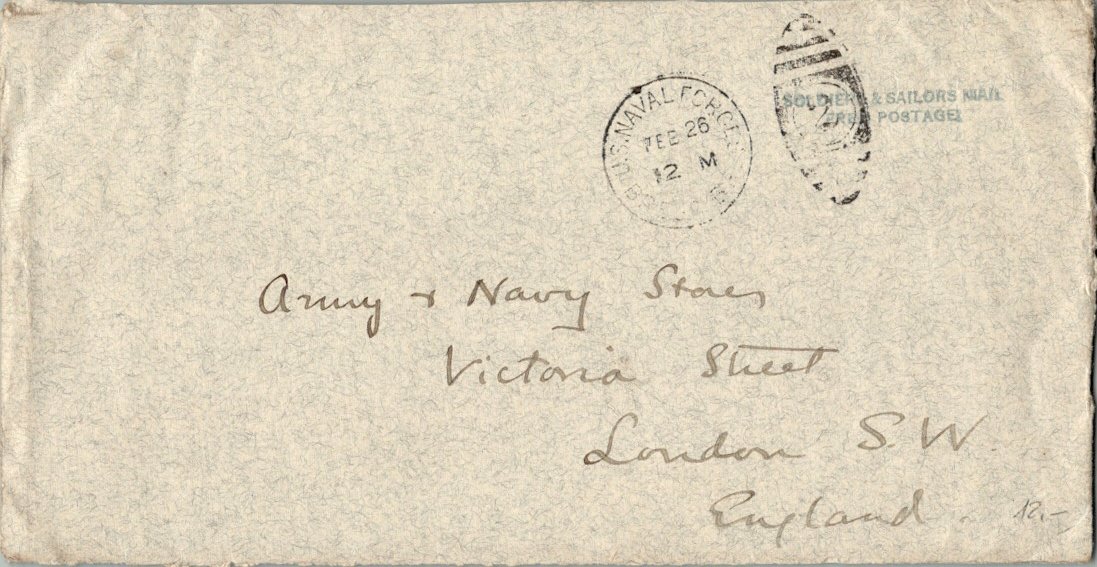 U.S. NAVAL FORCES
FEB 26
12 M
SOLDIERS & SAILORS MAIL
FREE POSTAGE
2
Army & Navy Stores
Victoria Street
London S.W.
England.
12.-